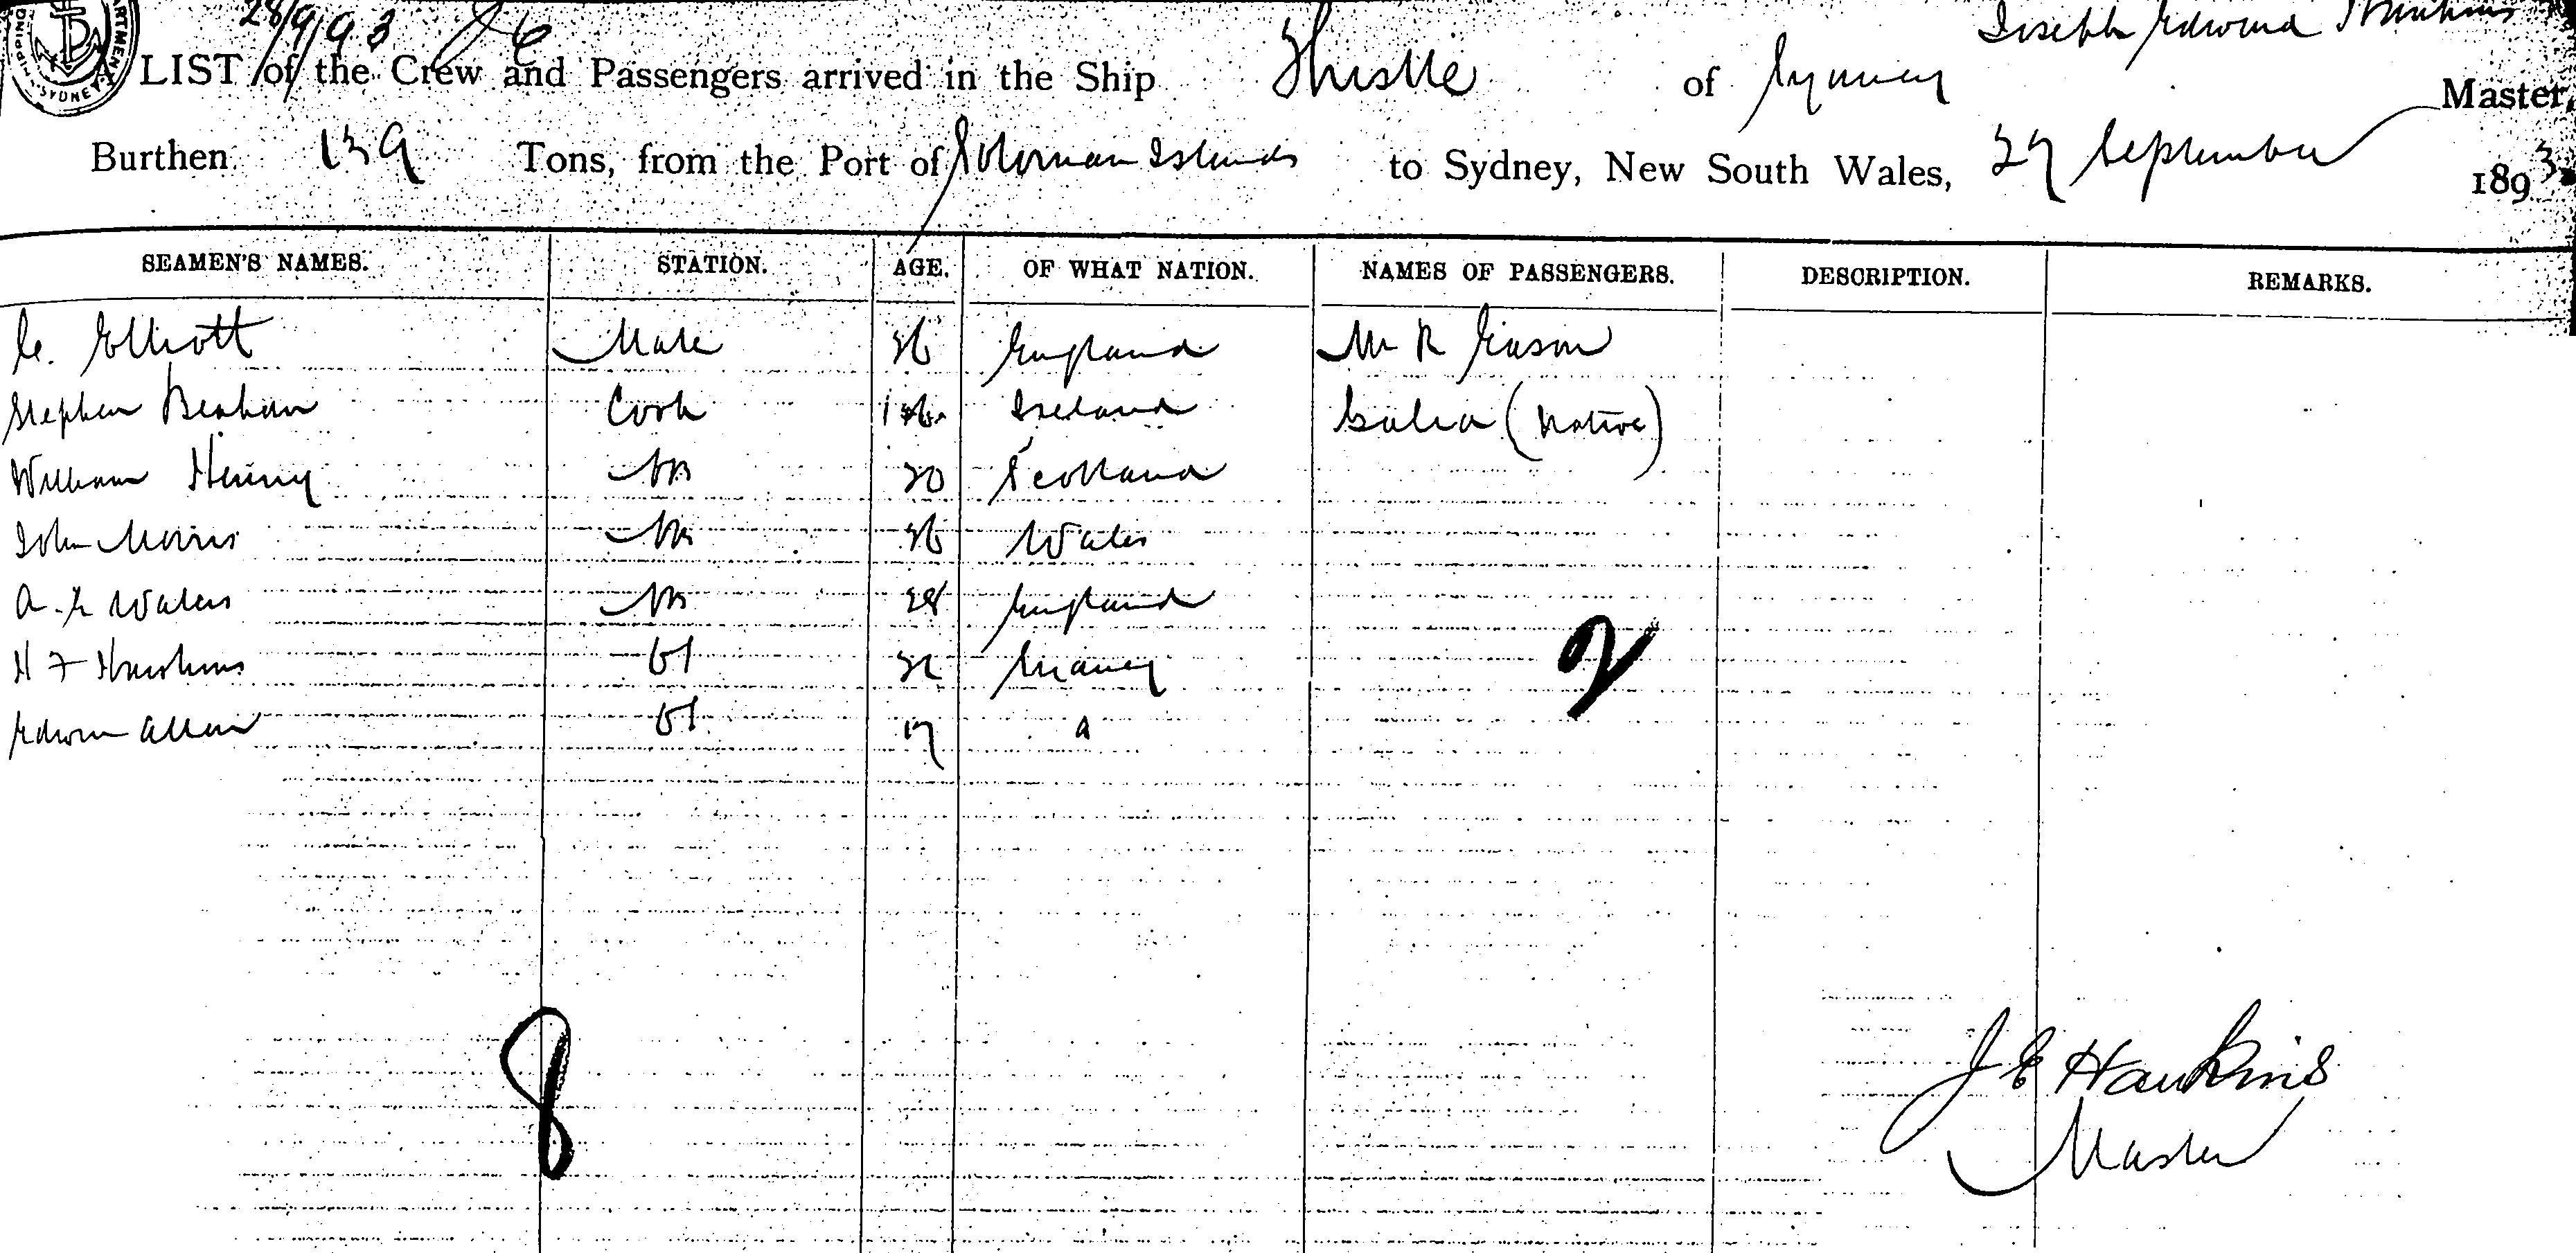 28/9/93
Joseph Edward Hawkins
LIST of the Crew and Passengers arrived in the Ship Thistle of Sydney Master,
Burthen 139 Tons, from the Port of Solomon Islands to Sydney, New South Wales, 27 September 1893
SEAMEN'S NAMES. STATION. AGE. OF WHAT NATION. NAMES OF PASSENGERS. DESCRIPTION. REMARKS.
C. Elliott Mate 36 England Mr R Eason
Stephen Beahan Cook Ireland (Native)
William Henry AB 30 Scotland
John Morris AB 36 Wales
A. E Waters AB 28 England
H F Hawkins OS Sydney
Edwin Allen OS 17
2
8
J E Hawkins
Master
SYDNEY